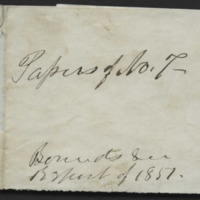 Papers of No. 7
Bounds &c
Report of 1851.